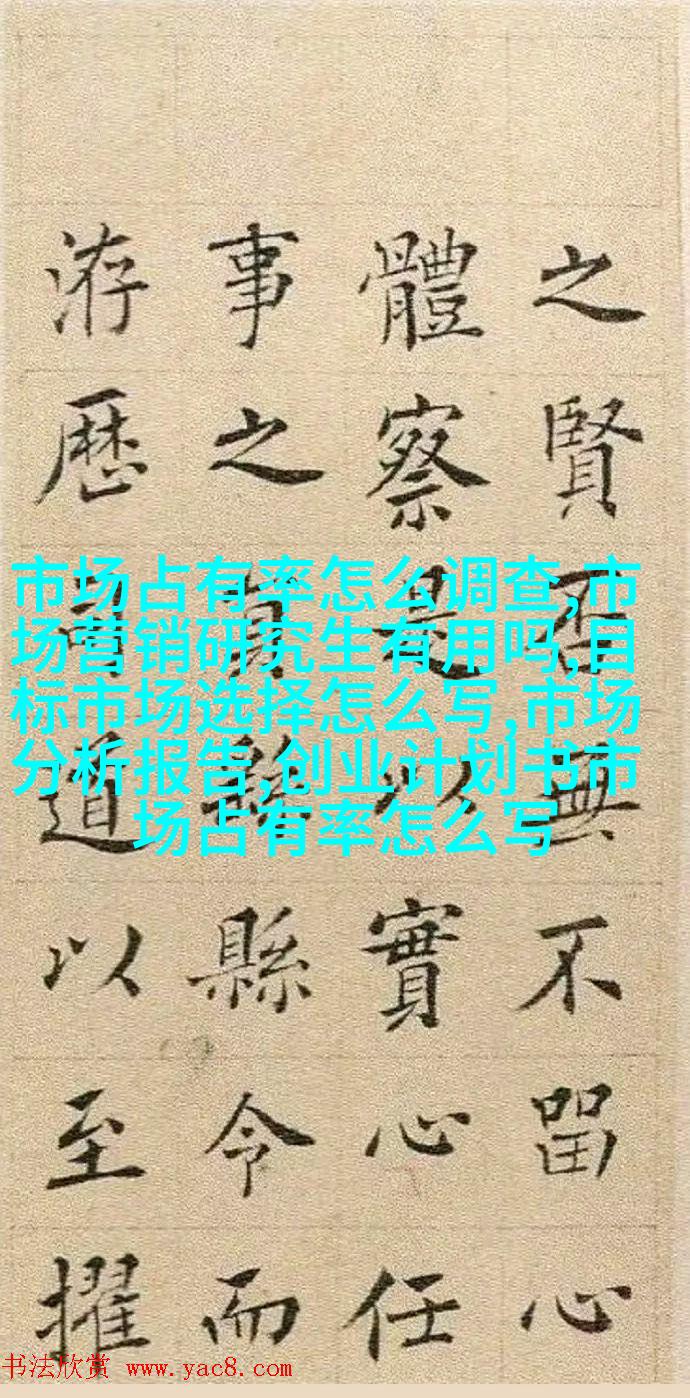 之賢否無不畱心
體察是以實心任
事之員縣令而
洊歷司道以至擢
市场占有率怎么调查,市
场营销研究生有用吗,目
标市场选择怎么写,市场
分析报告,创业计划书市
场占有率怎么写
书法欣赏 www.yac8.com